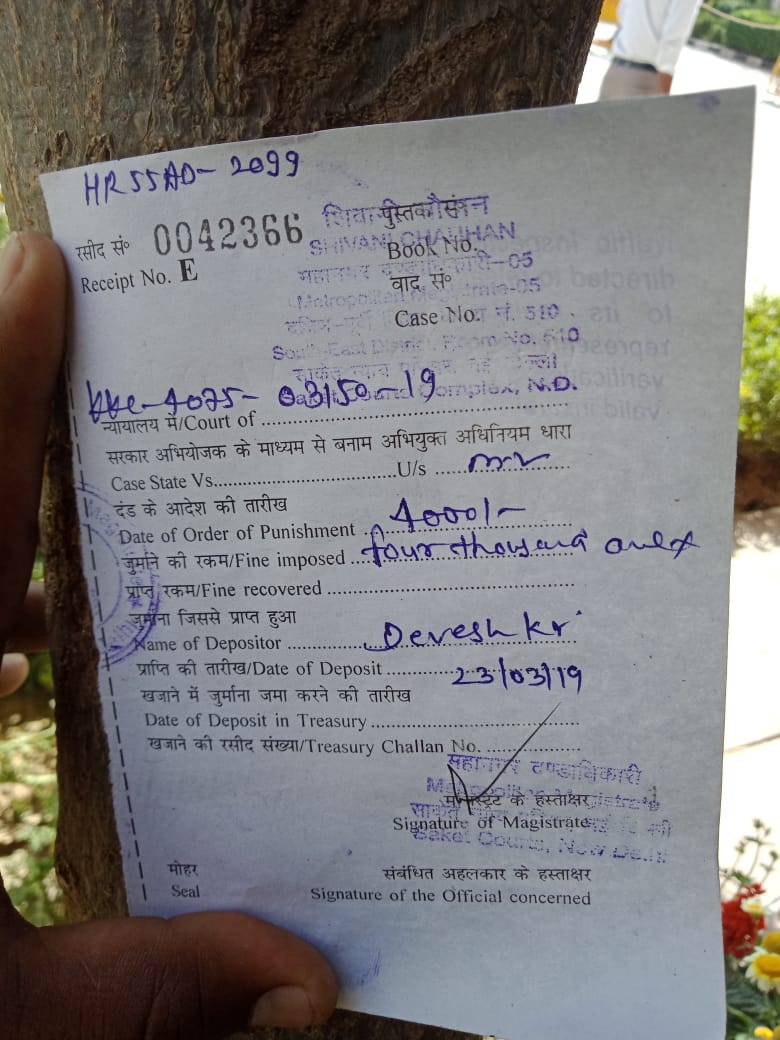 HR55AD-2099
रसीद सं° 0042366
Receipt No. E
पुस्तक सं°
SHIVANI CHAUHAN
Book No.
महानगर दण्डाधिकारी-05
वाद सं°
Metropolitan Magistrate-05
Case No. नं. 510
South-East District, Room No. 510
Saket Court Complex, N.D.
4025-03150-19
न्यायालय में/Court of
सरकार अभियोजक के माध्यम से बनाम अभियुक्त अधिनियम धारा
Case State Vs. U/s mv
दंड के आदेश की तारीख
Date of Order of Punishment 4000/-
जुर्माने की रकम/Fine imposed four thousand only
प्राप्त रकम/Fine recovered
जुर्माना जिससे प्राप्त हुआ
Name of Depositor Devesh kr
प्राप्ति की तारीख/Date of Deposit 23/03/19
खजाने में जुर्माना जमा करने की तारीख
Date of Deposit in Treasury
खजाने की रसीद संख्या/Treasury Challan No.
महानगर दण्डाधिकारी
मजिस्ट्रेट के हस्ताक्षर
Signature of Magistrate
Saket Courts, New Delhi
मोहर संबंधित अहलकार के हस्ताक्षर
Seal Signature of the Official concerned